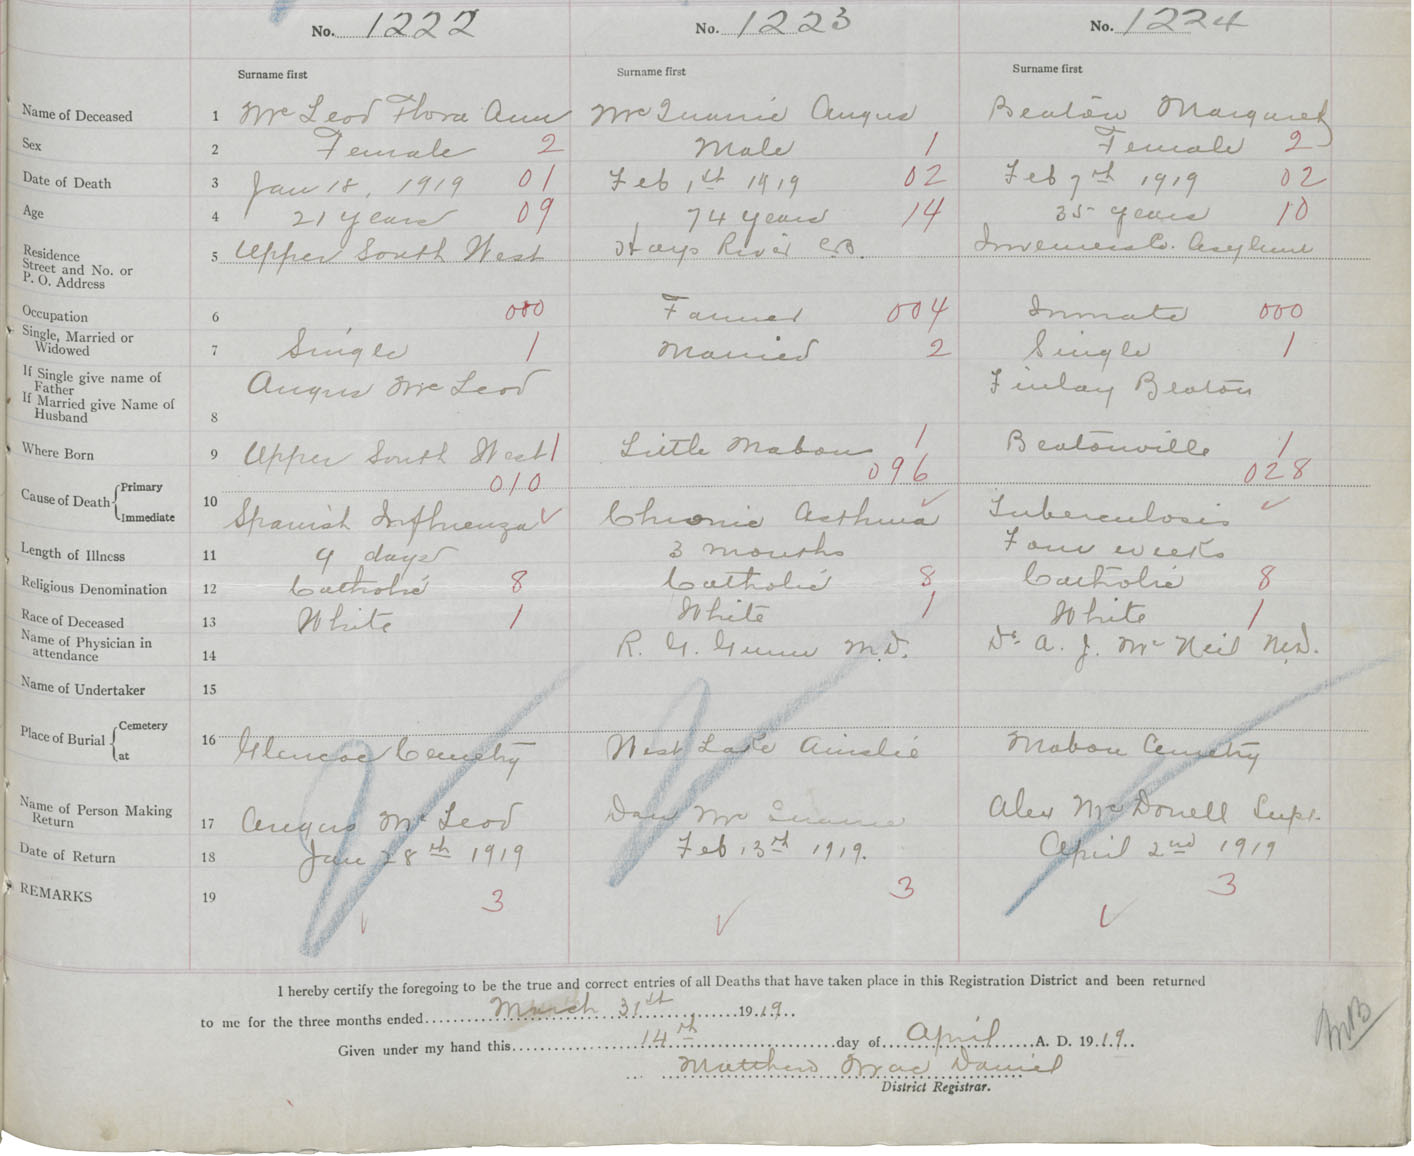 No. 1222 No. 1223 No. 1224
Surname first Surname first Surname first
Name of Deceased 1 Mc Leod Flora Ann Mc Quarrie Angus Beaton Margaret
Sex 2 Female 2 Male 1 Female 2
Date of Death 3 Jan 18, 1919 01 Feb 1st 1919 02 Feb 7th 1919 02
Age 4 21 years 09 74 years 14 35 years 10
Residence
Street and No. or
P. O. Address 5 Upper South West Hays River C.B. Inverness Co. Asylum
Occupation 6 000 Farmer 004 Inmate 000
Single, Married or
Widowed 7 Single 1 Married 2 Single 1
If Single give name of
Father
If Married give Name of
Husband 8 Angus Mc Leod Finlay Beaton
Where Born 9 Upper South West 1 Little Mabou 1 Beatonville 1
010 096 028
Cause of Death { Primary
Immediate 10 Spanish Influenza Chronic Asthma Tuberculosis
Length of Illness 11 9 days 3 months Four weeks
Religious Denomination 12 Catholic 8 Catholic 8 Catholic 8
Race of Deceased 13 White 1 White 1 White 1
Name of Physician in
attendance 14 R. G. Gunn M.D. Dr. A. J. Mc Neil M.D.
Name of Undertaker 15
Place of Burial { Cemetery
at 16 Glencoe Cemetry West Lake Ainslie Mabou Cemetry
Name of Person Making
Return 17 Angus Mc Leod Dan Mc Quarrie Alex Mc Donell Supt.
Date of Return 18 Jan 28th 1919 Feb 13th 1919. April 2nd 1919
REMARKS 19 3 3 3
I hereby certify the foregoing to be the true and correct entries of all Deaths that have taken place in this Registration District and been returned
to me for the three months ended March 31st 1919.
Given under my hand this 14th day of April A. D. 1919.
Matthew Mac Daniel
District Registrar.